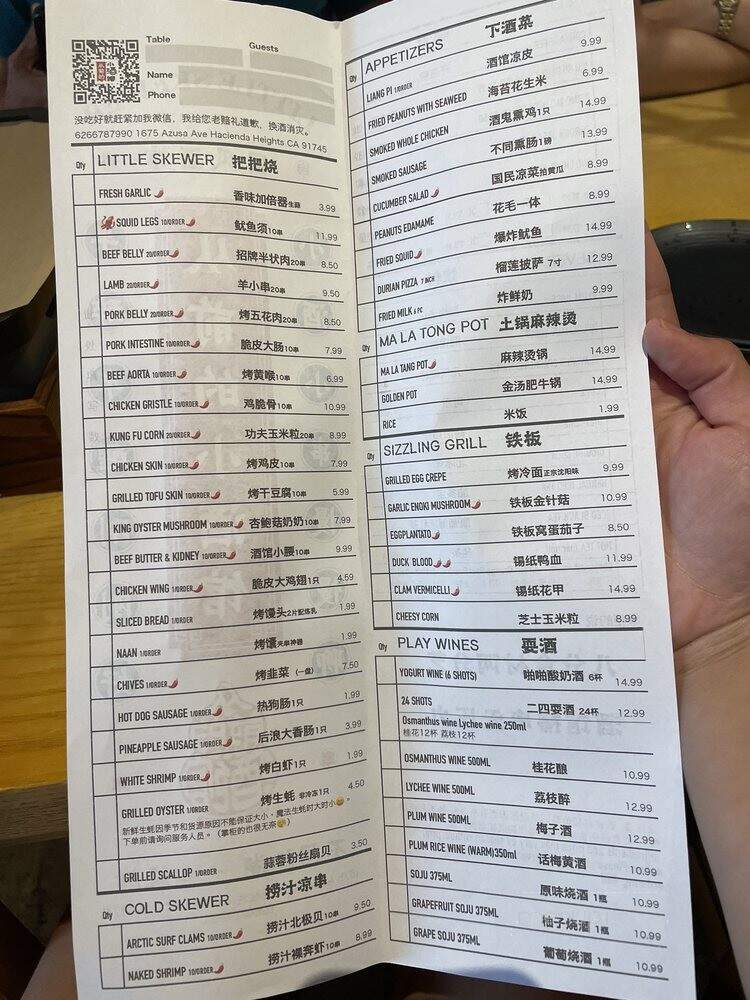 Table
Guests
Name
Phone
没吃好就赶紧加我微信，我给您老赔礼道歉，换酒消灾。
6266787990 1675 Azusa Ave Hacienda Heights CA 91745
Qty LITTLE SKEWER 把把烧
FRESH GARLIC 香味加倍器生蒜 3.99
SQUID LEGS 10/ORDER 鱿鱼须10串 11.99
BEEF BELLY 20/ORDER 招牌半状肉20串 8.50
LAMB 20/ORDER 羊小串20串 9.50
PORK BELLY 20/ORDER 烤五花肉20串 8.50
PORK INTESTINE 10/ORDER 脆皮大肠10串 7.99
BEEF AORTA 10/ORDER 烤黄喉10串 6.99
CHICKEN GRISTLE 10/ORDER 鸡脆骨10串 10.99
KUNG FU CORN 20/ORDER 功夫玉米粒20串 8.99
CHICKEN SKIN 10/ORDER 烤鸡皮10串 7.99
GRILLED TOFU SKIN 10/ORDER 烤干豆腐10串 5.99
KING OYSTER MUSHROOM 10/ORDER 杏鲍菇奶奶10串 7.99
BEEF BUTTER & KIDNEY 10/ORDER 酒馆小腰10串 9.99
CHICKEN WING 1/ORDER 脆皮大鸡翅1只 4.59
SLICED BREAD 1/ORDER 烤馒头2片配炼乳 1.99
NAAN 1/ORDER 烤馕夹串神器 1.99
CHIVES 1/ORDER 烤韭菜（一盘） 7.50
HOT DOG SAUSAGE 1/ORDER 热狗肠1只 1.99
PINEAPPLE SAUSAGE 1/ORDER 后浪大香肠1只 3.99
WHITE SHRIMP 1/ORDER 烤白虾1只 1.99
GRILLED OYSTER 1/ORDER 烤生蚝 非冷冻1只 4.50
新鲜生蚝因季节和货源原因不能保证大小，魔法生蚝时大时小😄。
下单前请询问服务人员。（掌柜的也很无奈😥）
GRILLED SCALLOP 1/ORDER 蒜蓉粉丝扇贝 3.50
Qty COLD SKEWER 捞汁凉串
ARCTIC SURF CLAMS 10/ORDER 捞汁北极贝10串 9.50
NAKED SHRIMP 10/ORDER 捞汁裸奔虾10串 8.99
Qty APPETIZERS 下酒菜
LIANG PI 1/ORDER 酒馆凉皮 9.99
FRIED PEANUTS WITH SEAWEED 海苔花生米 6.99
SMOKED WHOLE CHICKEN 酒鬼熏鸡1只 14.99
SMOKED SAUSAGE 不同熏肠1磅 13.99
CUCUMBER SALAD 国民凉菜拍黄瓜 8.99
PEANUTS EDAMAME 花毛一体 8.99
FRIED SQUID 爆炸鱿鱼 14.99
DURIAN PIZZA 7 INCH 榴莲披萨 7寸 12.99
FRIED MILK 6 PC 炸鲜奶 9.99
Qty MA LA TONG POT 土锅麻辣烫
MA LA TANG POT 麻辣烫锅 14.99
GOLDEN POT 金汤肥牛锅 14.99
RICE 米饭 1.99
Qty SIZZLING GRILL 铁板
GRILLED EGG CREPE 烤冷面正宗沈阳味 9.99
GARLIC ENOKI MUSHROOM 铁板金针菇 10.99
EGGPLANTATO 铁板窝蛋茄子 8.50
DUCK BLOOD 锡纸鸭血 11.99
CLAM VERMICELLI 锡纸花甲 14.99
CHEESY CORN 芝士玉米粒 8.99
Qty PLAY WINES 耍酒
YOGURT WINE (6 SHOTS) 啪啪酸奶酒 6杯 14.99
24 SHOTS 二四耍酒 24杯 12.99
Osmanthus wine Lychee wine 250ml
桂花12杯 荔枝12杯
OSMANTHUS WINE 500ML 桂花酿 10.99
LYCHEE WINE 500ML 荔枝醉 12.99
PLUM WINE 500ML 梅子酒 12.99
PLUM RICE WINE (WARM)350ml 话梅黄酒 10.99
SOJU 375ML 原味烧酒 1瓶 10.99
GRAPEFRUIT SOJU 375ML 柚子烧酒 1瓶 10.99
GRAPE SOJU 375ML 葡萄烧酒 1瓶 10.99